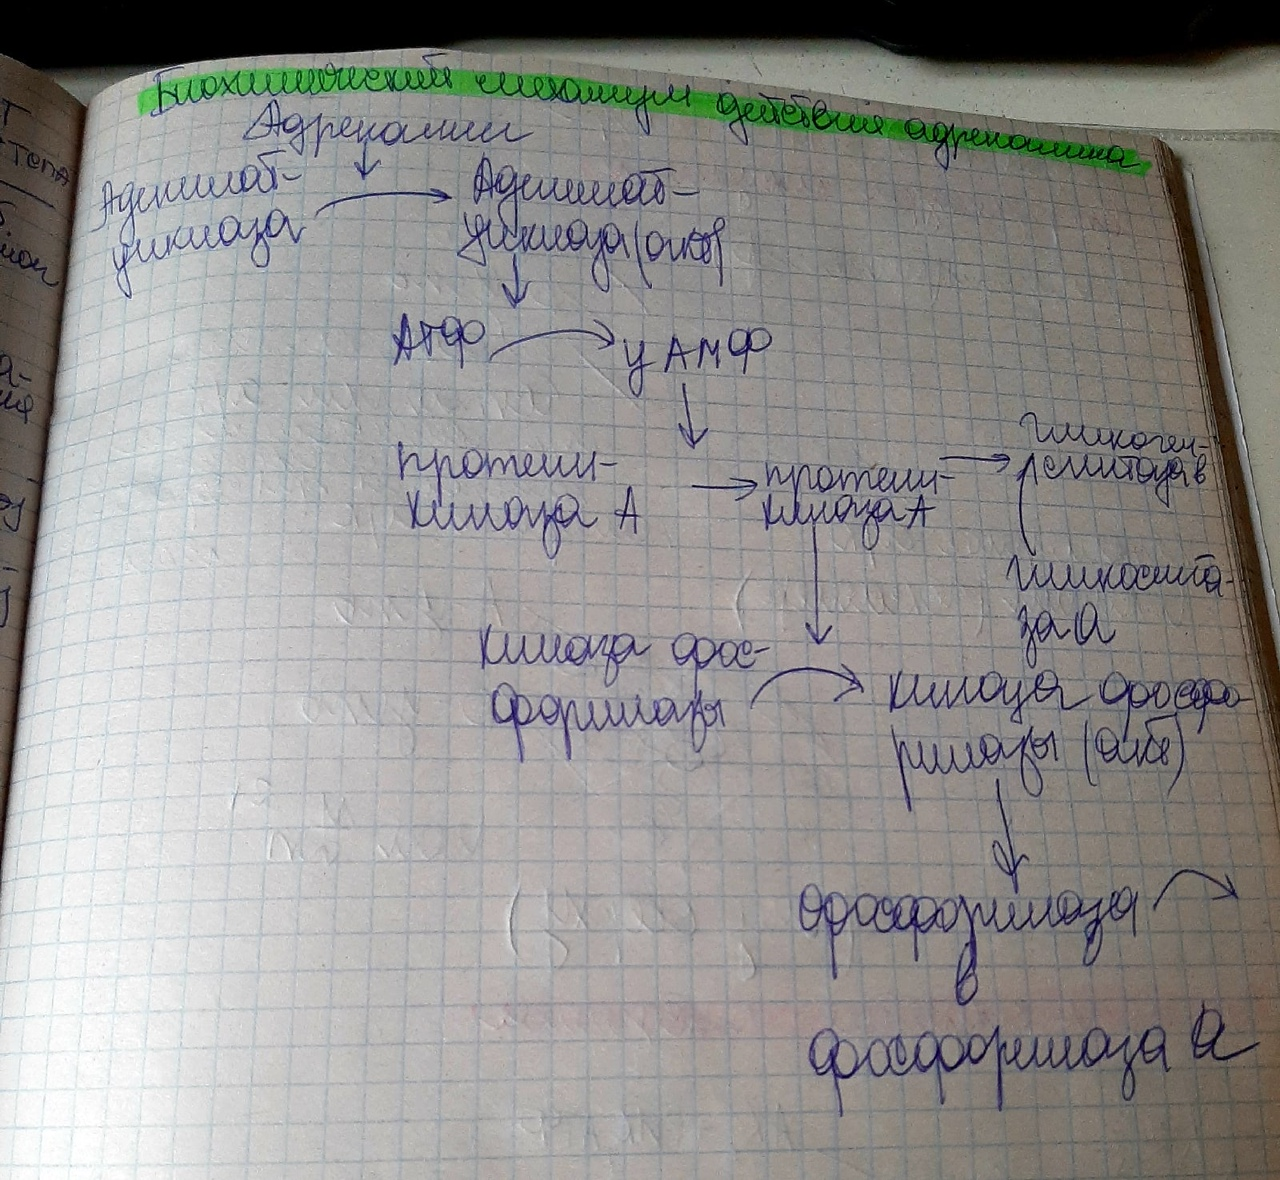 Биохимический механизм действия адреналина
Адреналин
Аденилат-
циклаза
Аденилат-
циклаза (акт)
АТФ
цАМФ
протеин-
киназа А
протеин-
киназа А
Гликоген-
синтаза в
Гликосинта-
за а
Киназа фос-
форилазы
киназа фосфо-
рилазы (акт)
Фосфорилаза
в
фосфорилаза а